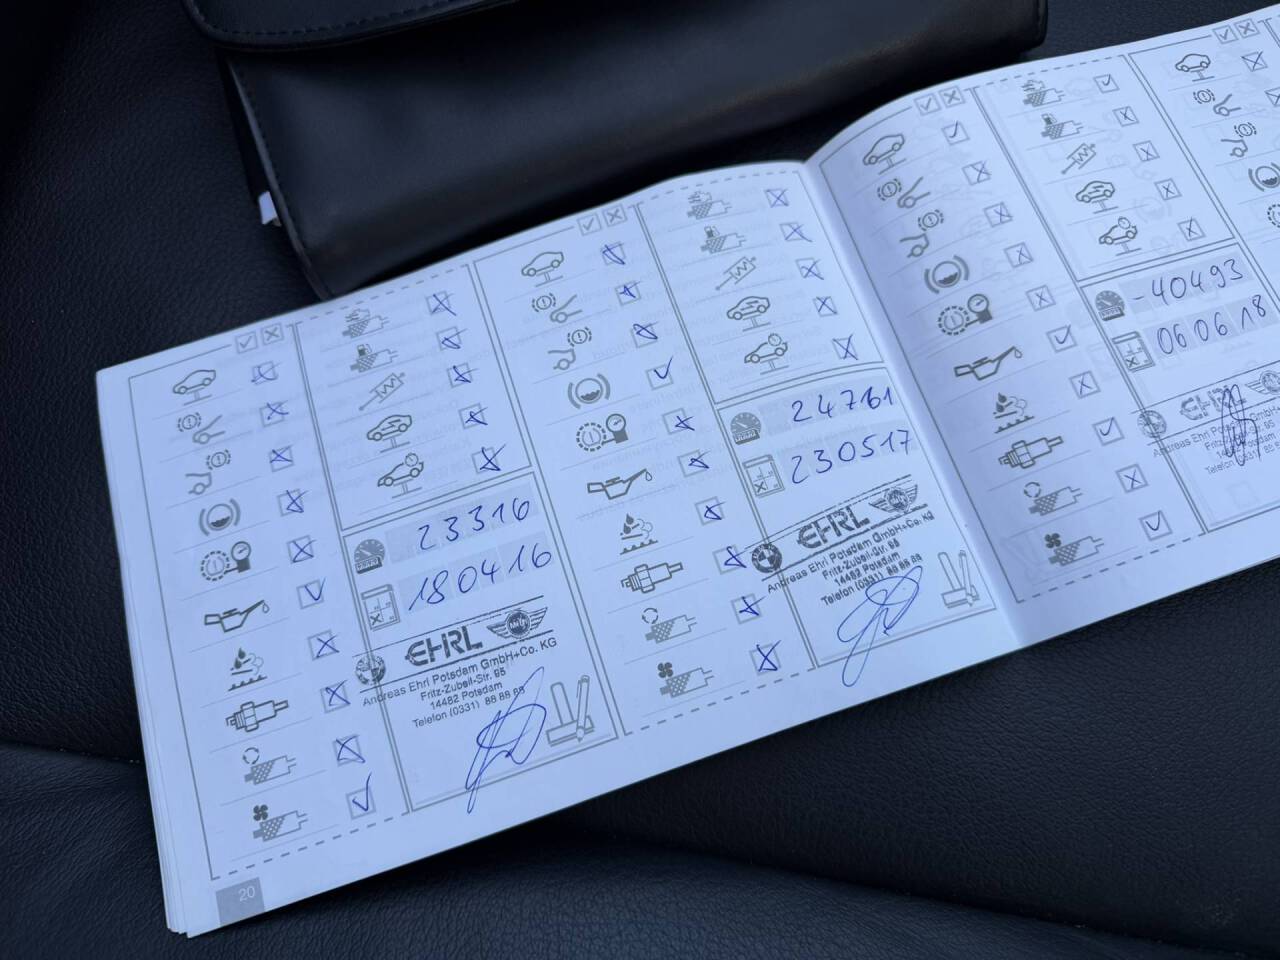 23316
180416
EHRL
Andreas Ehrl Potsdam GmbH+Co. KG
Fritz-Zubeil-Str. 95
14482 Potsdam
Telefon (0331) 88 88 88
20
24761
230517
EHRL
Andreas Ehrl Potsdam GmbH+Co. KG
Fritz-Zubeil-Str. 95
14482 Potsdam
Telefon (0331) 88 88 88
-40493
060618
EHRL
Andreas Ehrl Potsdam